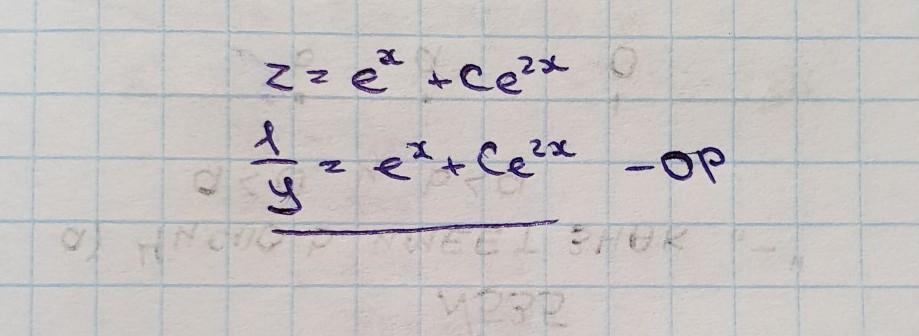 z = e^x + Ce^{2x}
1/y = e^x + Ce^{2x} - ОР